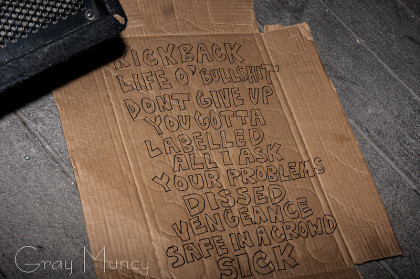 KICKBACK
LIFE O' BULLSHIT
DONT GIVE UP
YOU GOTTA
LABELLED
ALL I ASK
YOUR PROBLEMS
DISSED
VENGEANCE
SAFE IN A CROWD
SICK
Gray Muncy